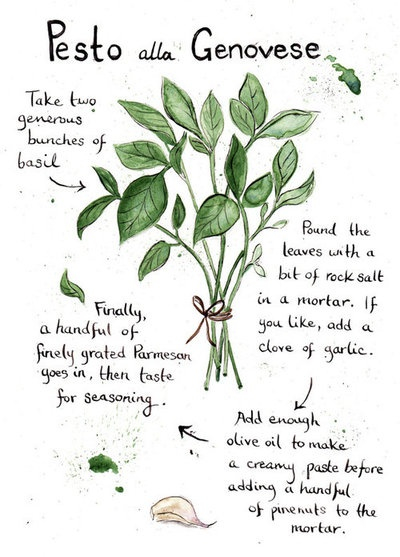 Pesto alla Genovese
Take two
generous
bunches of
basil
Pound the
leaves with a
bit of rock salt
in a mortar. If
you like, add a
clove of garlic.
Add enough
olive oil to make
a creamy paste before
adding a handful
of pinenuts to the
mortar.
Finally,
a handful of
finely grated Parmesan
goes in, then taste
for seasoning.